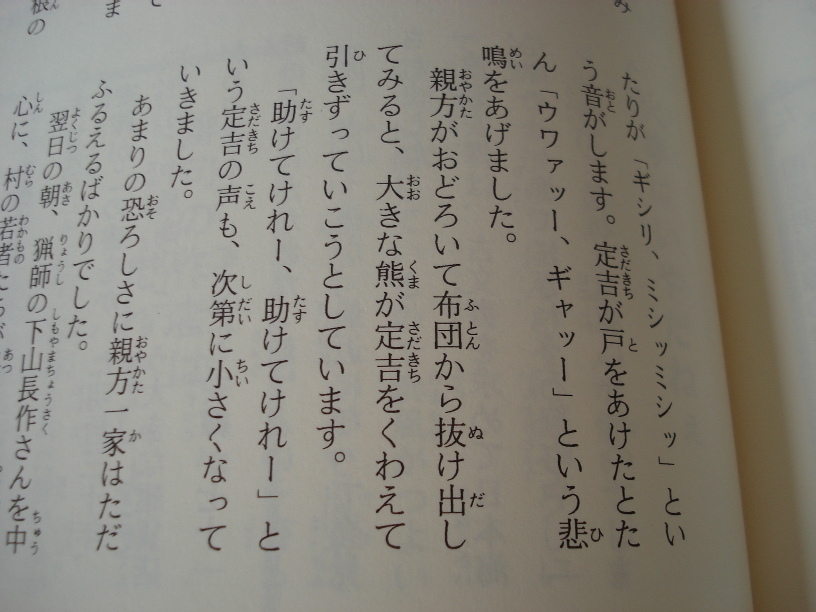 み
たりが「ギシリ、ミシッミシッ」とい
う音がします。定吉が戸をあけたとた
ん「ウワァッー、ギャッー」という悲
鳴をあげました。
親方がおどろいて布団から抜け出し
てみると、大きな熊が定吉をくわえて
引きずっていこうとしています。
「助けてけれー、助けてけれー」と
いう定吉の声も、次第に小さくなって
いきました。
あまりの恐ろしさに親方一家はただ
ふるえるばかりでした。
翌日の朝、猟師の下山長作さんを中
心に、村の若者たちが
て
ま
根の